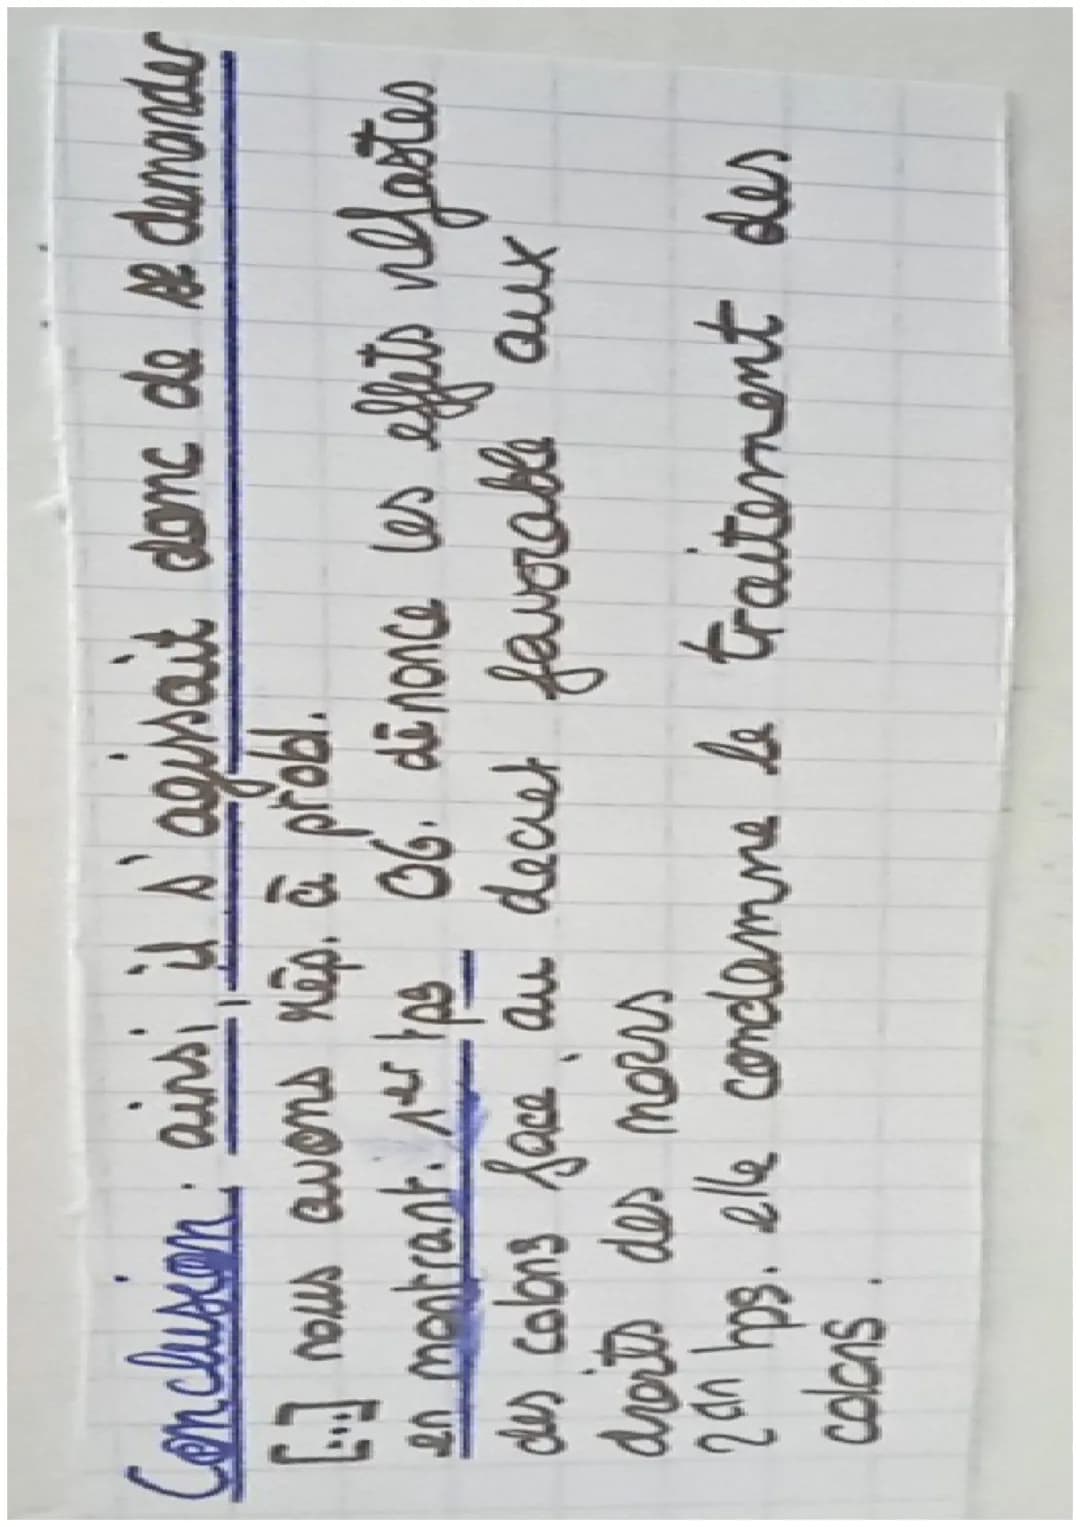 Conclusion. ainsi, il s'agissait donc de se demander
[...] nous avons rép. à probl.
en montrant. 1er tps OG. dénonce les effets néfastes
des colons face, au decret favorable aux
droits des noirs
2 èn tps. elle condamne le traitement des
colons.